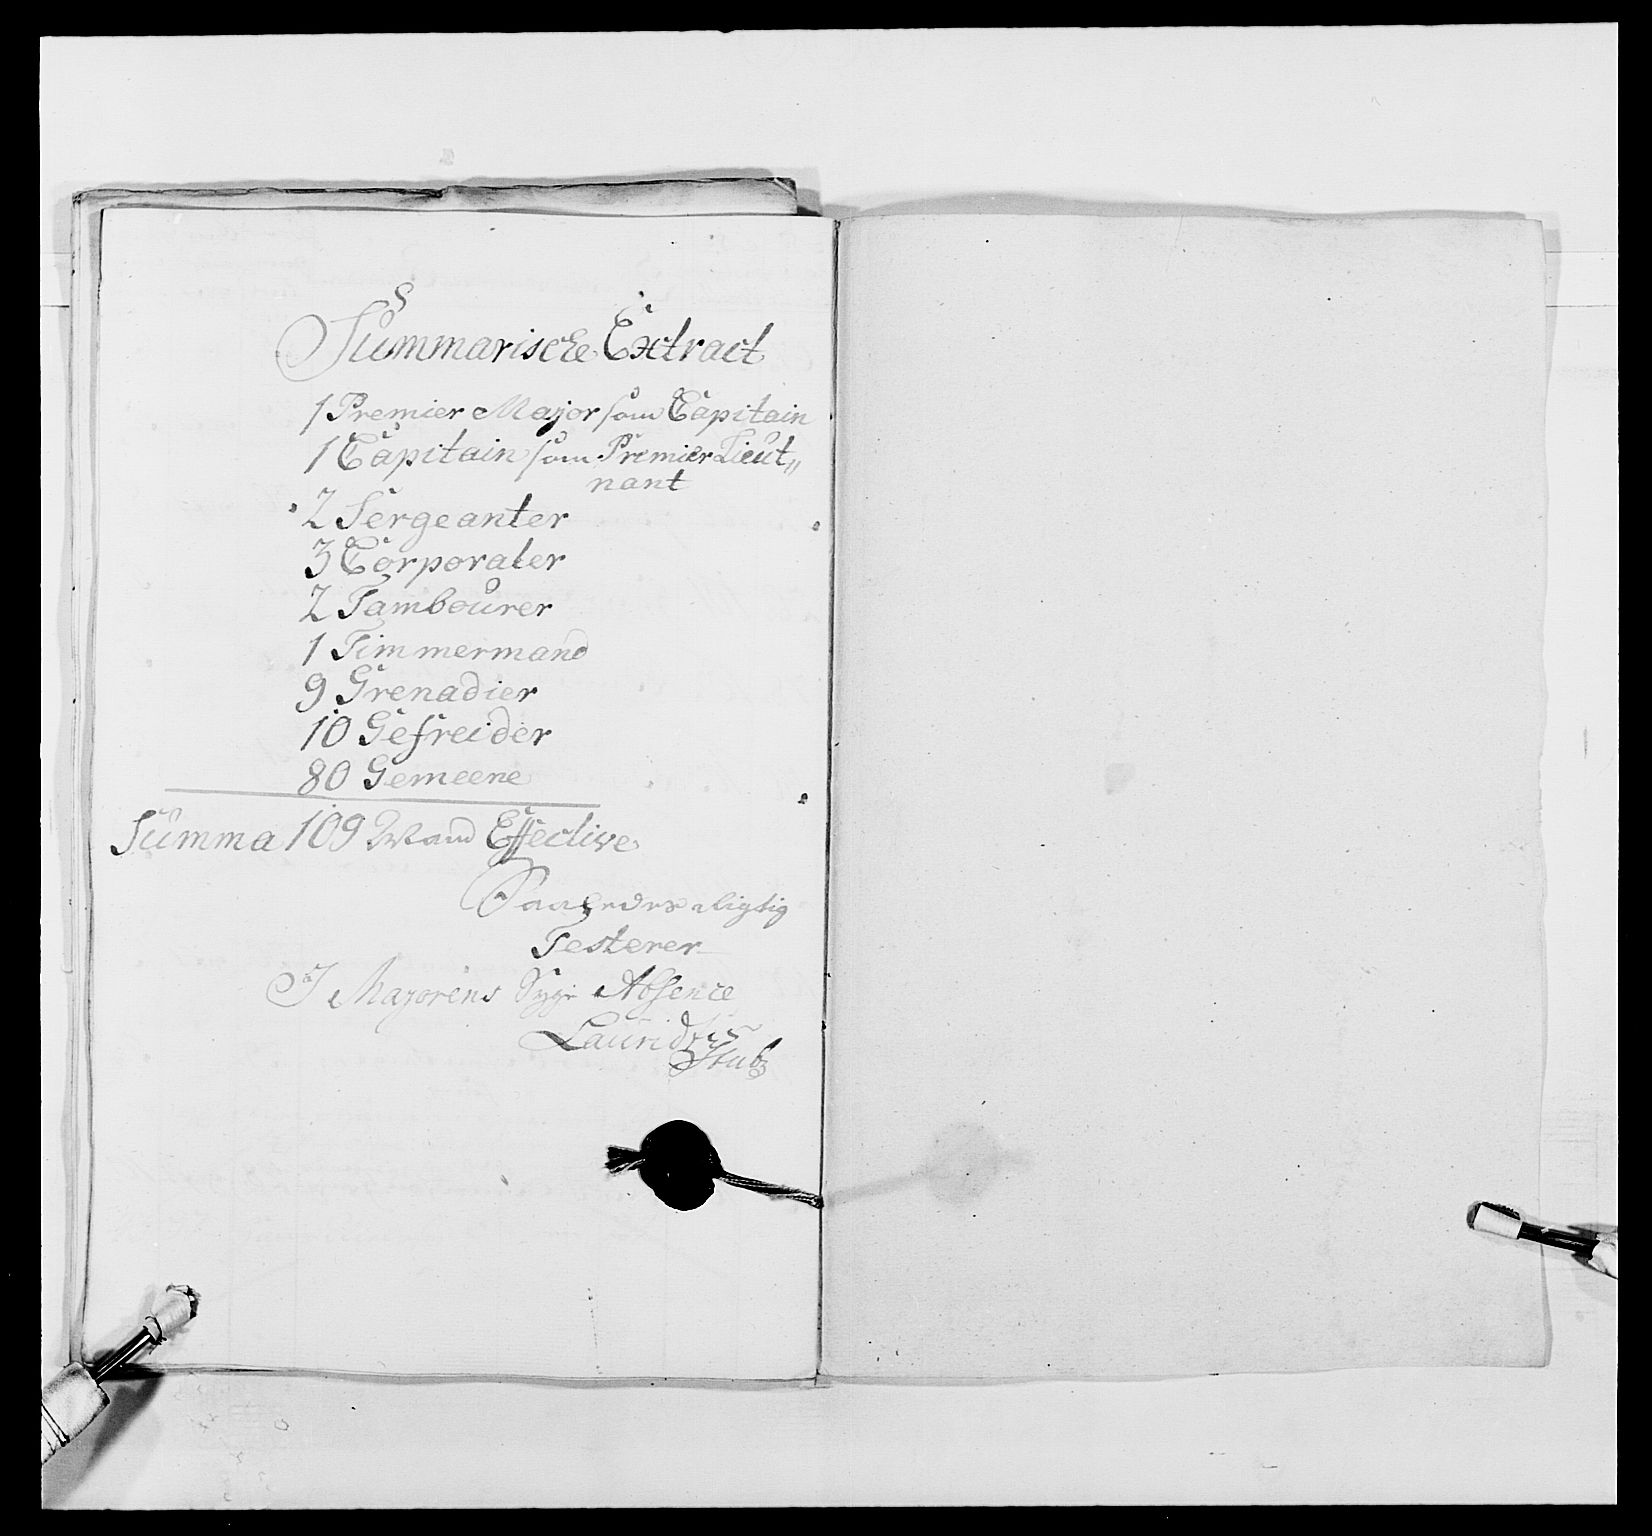 Summarische Extract
1 Premier Major som Capitain
1 Capitain som Premier Lieut„
nant
2 Sergeanter
3 Corporaler
2 Tambourer
1 Timmermand
9 Grenadier
10 Gefreider
80 Gemeene
Summa 109 Mand Effective
Saaledes rigtig
Testerer
I Majorens Syge Absence
Lauridtz
Stub